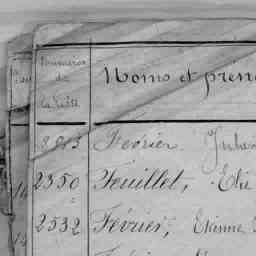 Numéros
de
la Table
Noms et prén
8813 Février
2350 Feuillet, Elie
2532 Février, Etienne